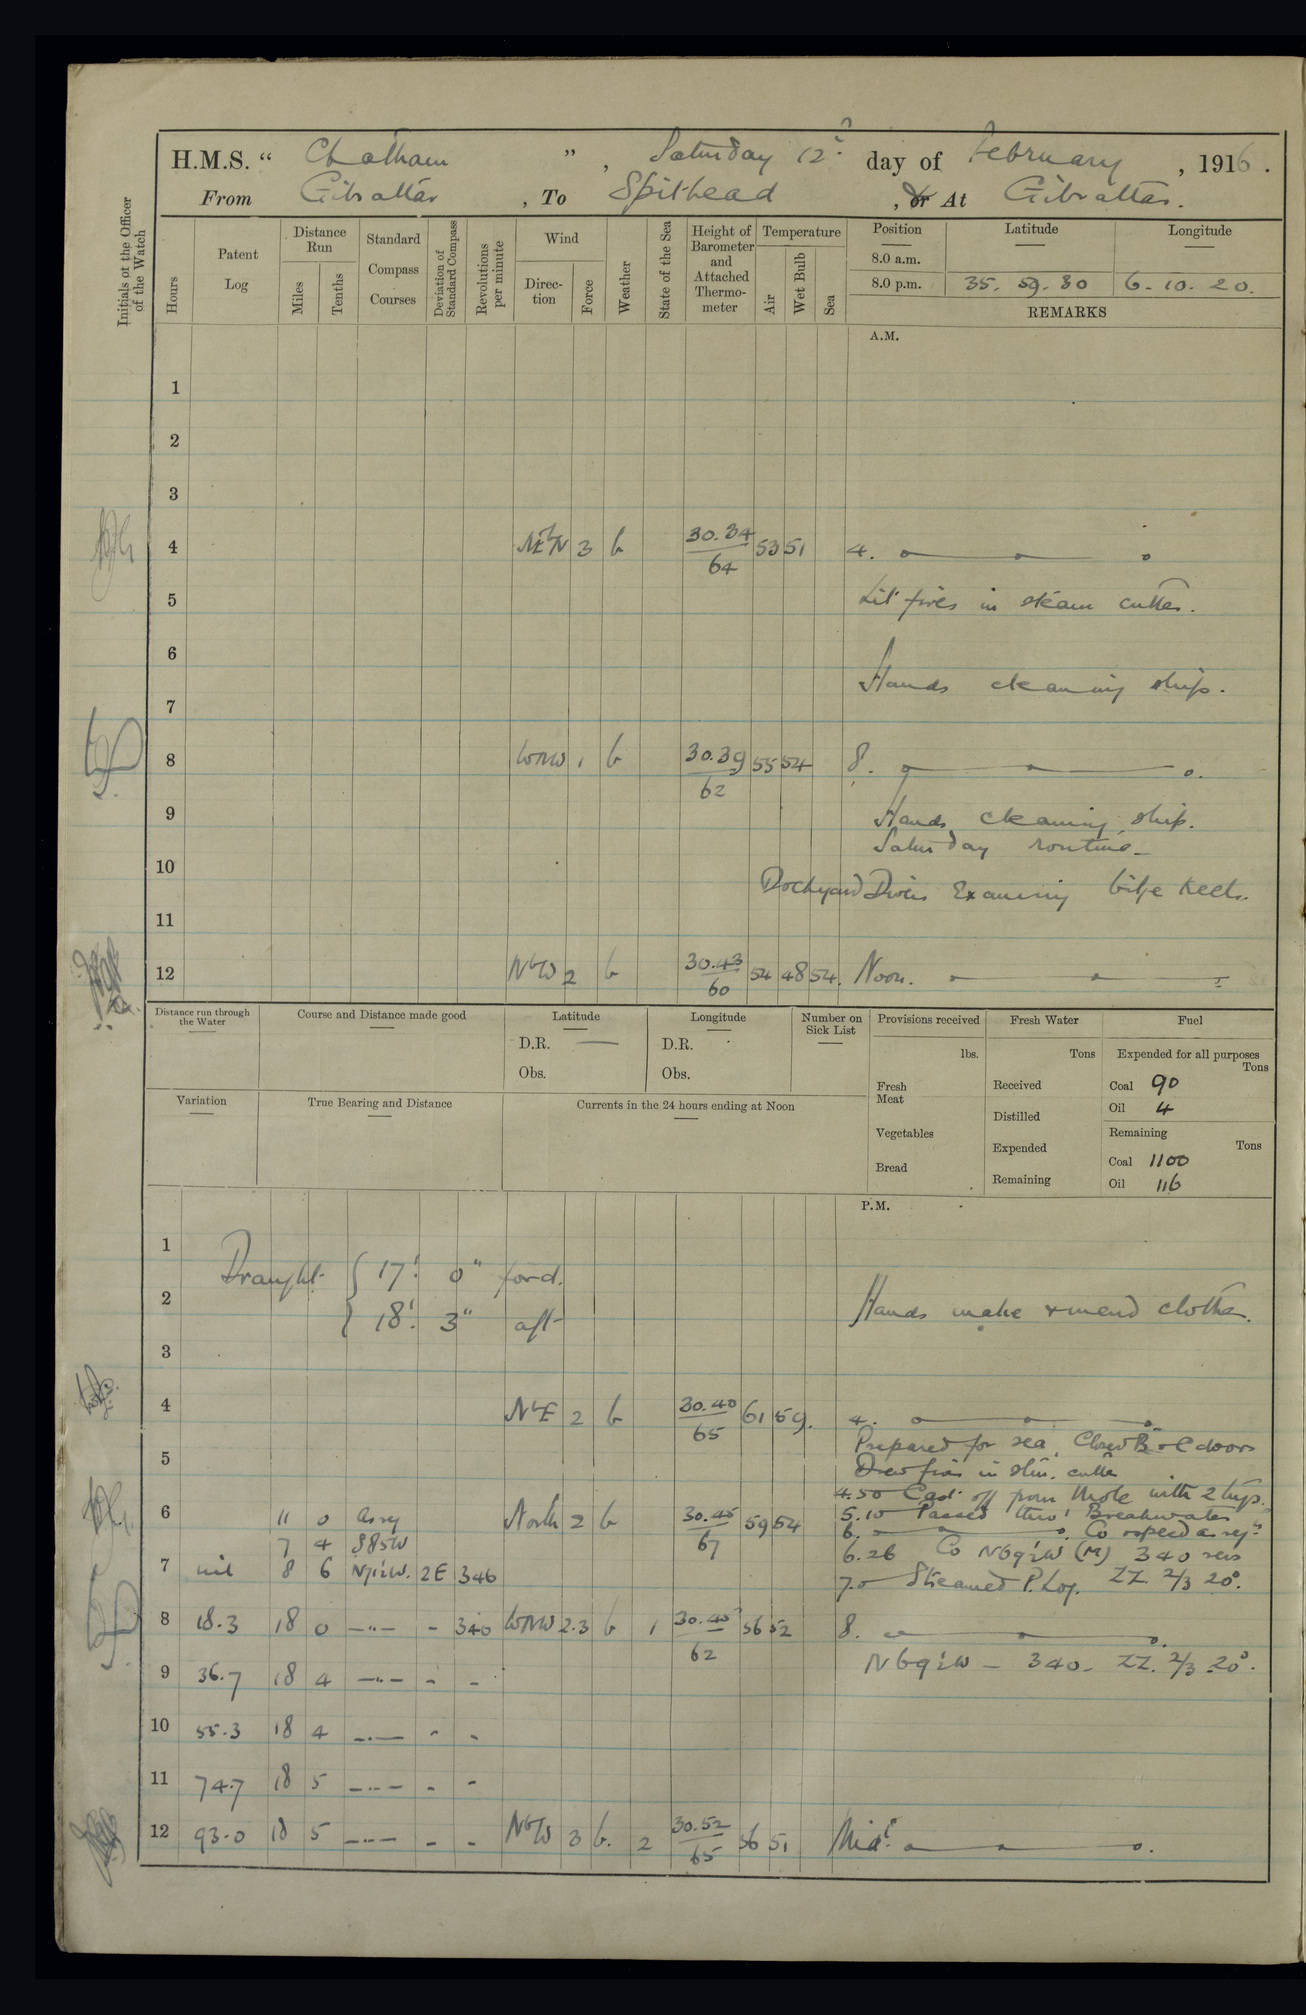 H.M.S. “ Chatham ” , Saturday 12th day of February , 1916 .
From Gibraltar , To Spithead , or At Gibraltar.
Initials of the Officer of the Watch
Hours
Patent Log
Distance Run
Miles
Tenths
Standard Compass Courses
Deviation of Standard Compass
Revolutions per minute
Wind
Direction
Force
Weather
State of the Sea
Height of Barometer and Attached Thermometer
Temperature
Air
Wet Bulb
Sea
Position Latitude Longitude
8.0 a.m.
8.0 p.m. 35. 59. 30 6. 10. 20.
REMARKS
A.M.
1
2
3
4 NEbN 3 b 30.34/64 53 51 4.
5 Lit fires in steam cutter.
6 Hands cleaning ship.
7
8 WNW 1 b 30.39/62 55 54 8.
9 Hands cleaning ship.
Saturday routine
10 Dockyard Divers Examining bilge keels.
11
12 NbW 2 b 30.43/60 54 48 54. Noon.
Distance run through the Water
Course and Distance made good
Latitude
D.R.
Obs.
Longitude
D.R.
Obs.
Number on Sick List
Provisions received
lbs.
Fresh Meat
Vegetables
Bread
Fresh Water
Tons
Received
Distilled
Expended
Remaining
Fuel
Expended for all purposes
Tons
Coal 90
Oil 4
Remaining
Tons
Coal 1100
Oil 116
Variation
True Bearing and Distance
Currents in the 24 hours ending at Noon
P.M.
1 Draught { 17' 0" ford.
2 18' 3" aft
Hands make & mend clothes.
3
4 NbE 2 b 30.40/65 61 59. 4.
Prepared for sea. Closed B & C doors
5 Drew fires in stm. cutter
4.50 Cast off from Mole with 2 tugs.
6 11 0 as req North 2 b 30.45/67 59 54 5.10 Passed thro' Breakwater
6. Co & speed as reqd
7 4 S85W 6.26 Co N69½W (M) 340 revs
7 nil 8 6 N71½W. 2E 346 7.0 Streamed P. Log. ZZ. 2/3 20°.
8 18.3 18 0 —"— - 340 WNW 2.3 b 1 30.45/62 56 52 8.
9 36.7 18 4 —"— - - N69½W – 340 – ZZ. 2/3 20°.
10 55.3 18 4 —"— - -
11 74.7 18 5 —"— - -
12 93.0 18 5 —"— - - NbW 3 b. 2 30.52/65 56 51 Midt.